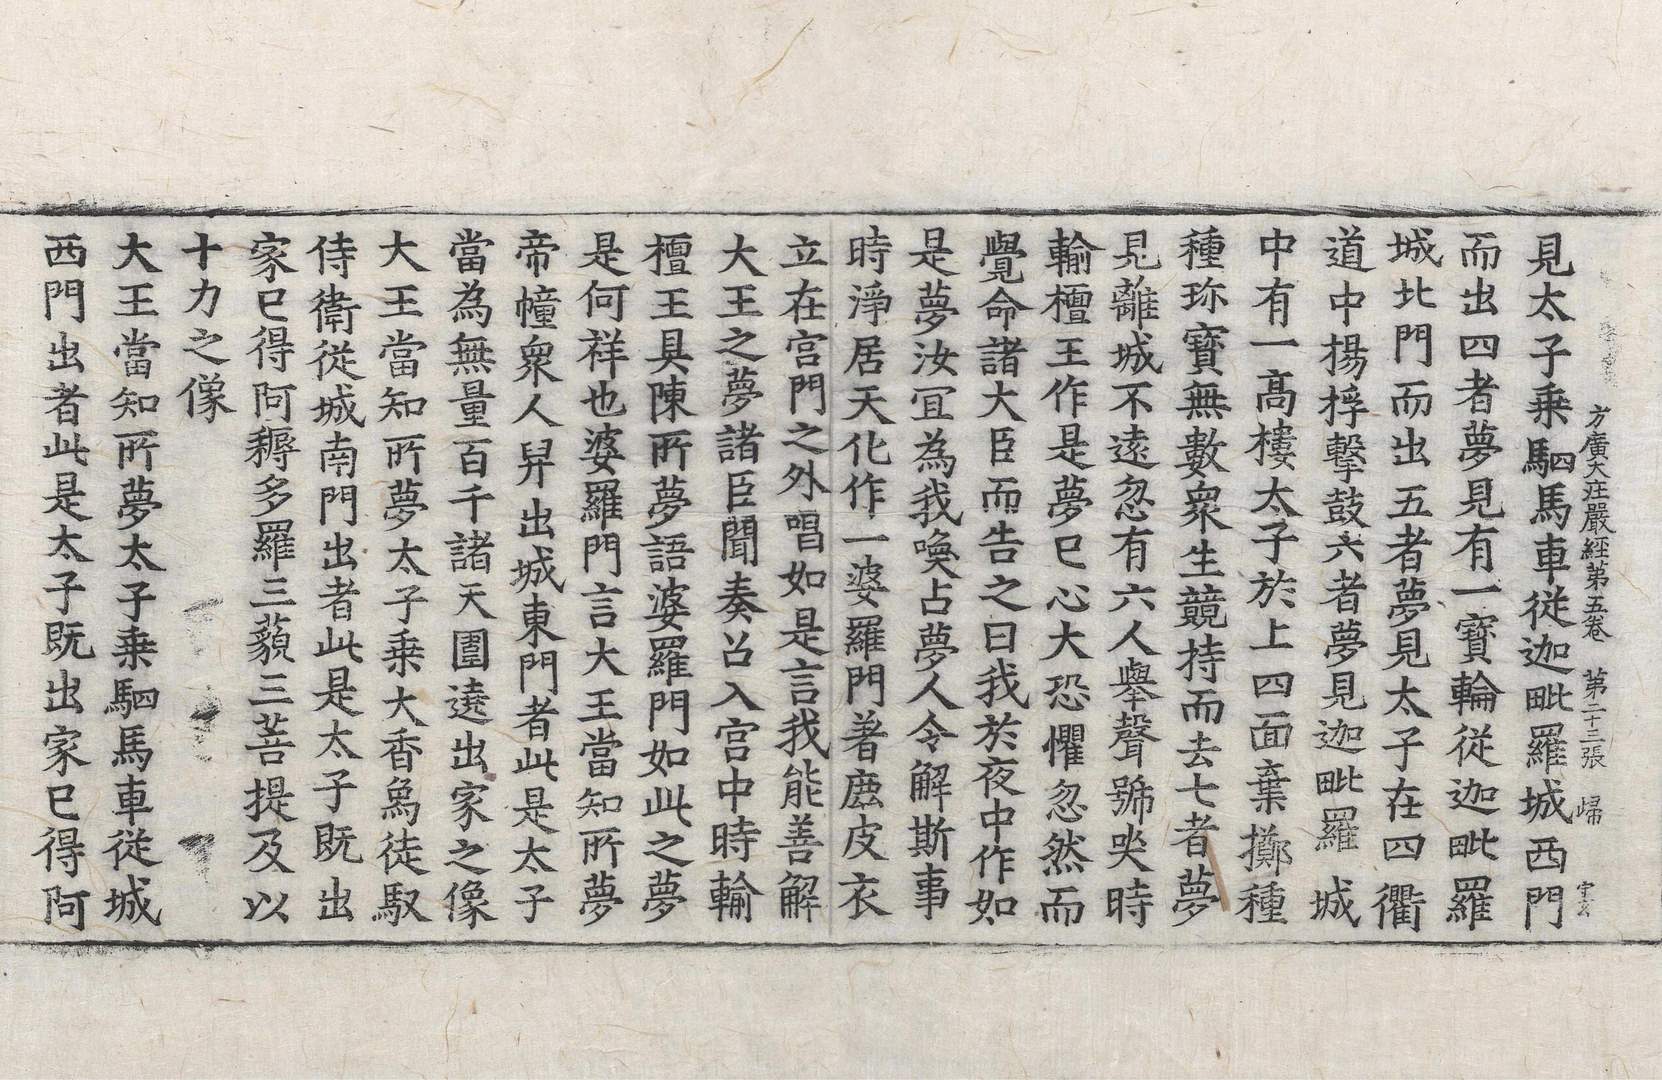 方廣大庄嚴經第五卷 第二十三張 歸
見太子乗駟馬車従迦毗羅城西門
而出四者夢見有一寶輪従迦毗羅
城北門而出五者夢見太子在四衢
道中揚桴擊鼓六者夢見迦毗羅城
中有一高樓太子於上四面棄擲種
種珎寶無數衆生競持而去七者夢
見離城不遠忽有六人舉聲號哭時
輸檀王作是夢已心大恐懼忽然而
覺命諸大臣而告之曰我於夜中作如
是夢汝冝為我喚占夢人令解斯事
時淨居天化作一婆羅門著鹿皮衣
立在宫門之外唱如是言我能善解
大王之夢諸臣聞奏召入宫中時輸
檀王具陳所夢語婆羅門如此之夢
是何祥也婆羅門言大王當知所夢
帝幢衆人舁出城東門者此是太子
當為無量百千諸天圍遶出家之像
大王當知所夢太子乗大香象徒馭
侍衛従城南門出者此是太子既出
家已得阿耨多羅三藐三菩提及以
十力之像
大王當知所夢太子乗駟馬車従城
西門出者此是太子既出家已得阿